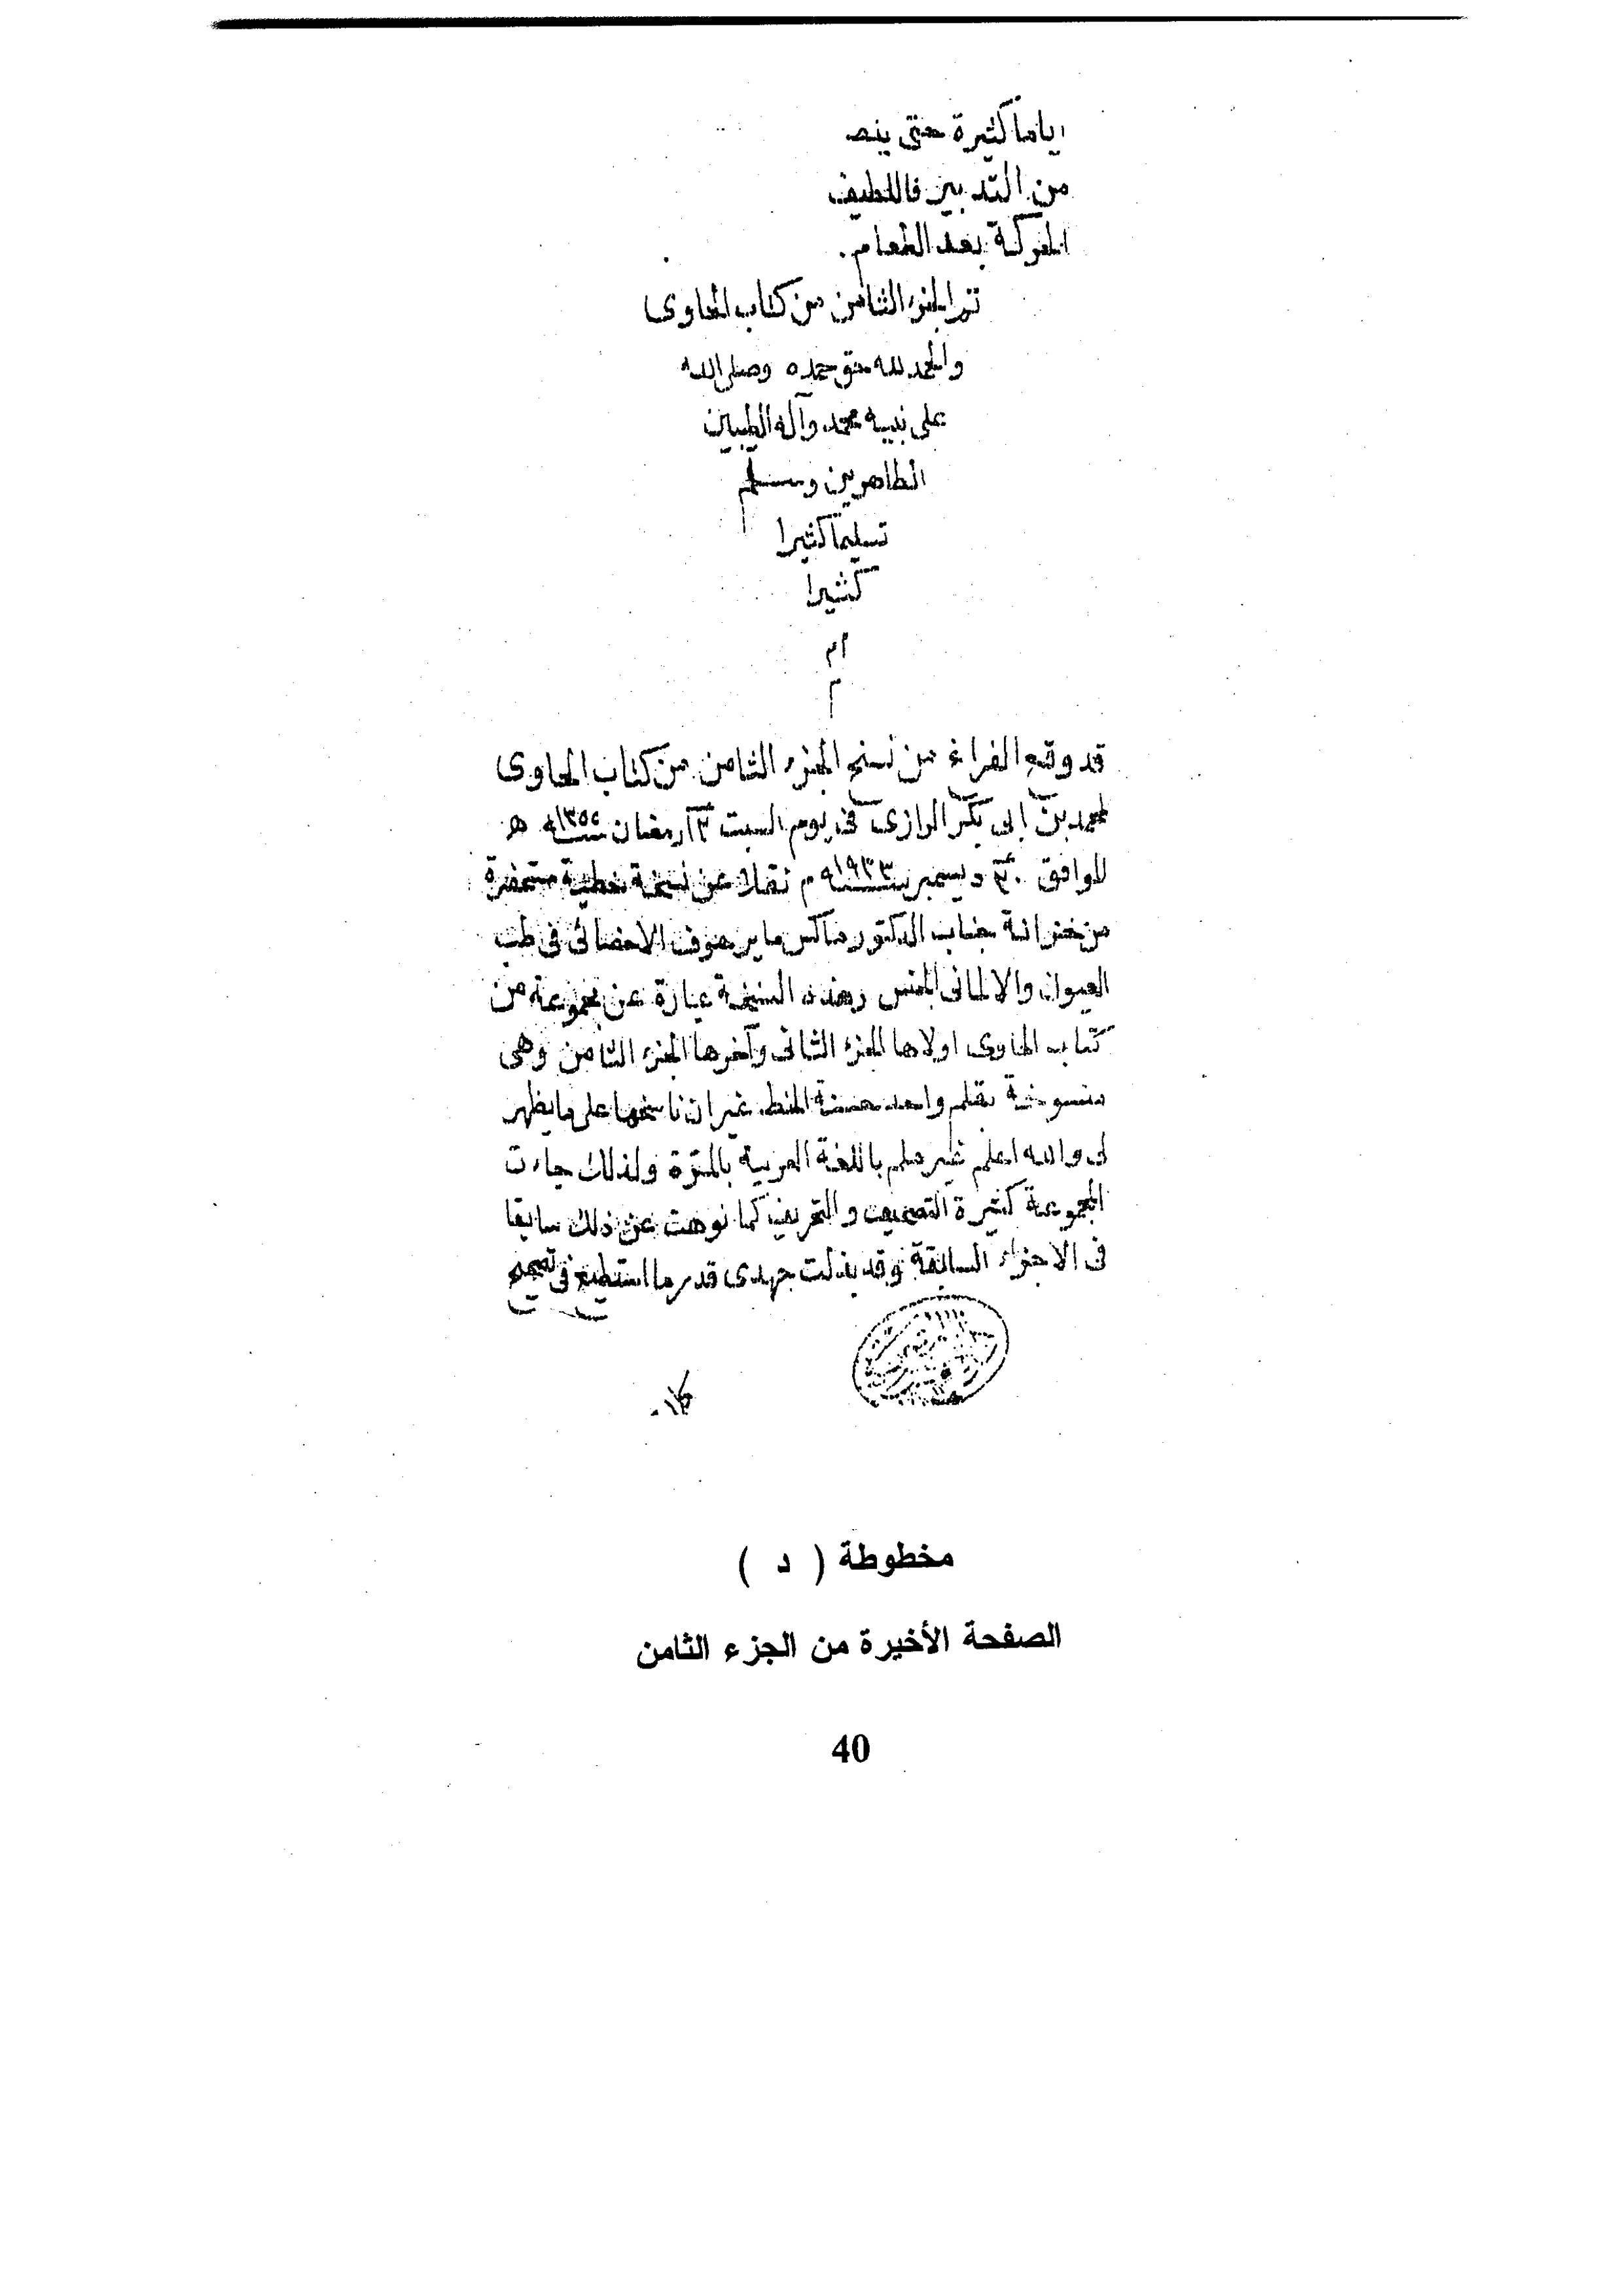 اياما كثيرة حتى ينصـ
من التدبير فاللطيف
الحركة بعد الطعام.
تم الجزء الثامن من كتاب الحاوى
والحمد لله حق حمده وصلى الله
على نبيه محمد وآله الطيبين
الطاهرين وسلم
تسليما كثيرا
كثيرا
قد وقع الفراغ من نسخ الجزء الثامن من كتاب الحاوى
لمحمد بن ابى بكر الرازى فى يوم السبت رمضان سنة ١٣٥٢ هـ
الموافق ٣٠ ديسمبر سنة ١٩٣٣ م نقلا عن نسخة خطية مستحضرة
من خزانة جناب الدكتور ماكس مايرهوف الاخصائى فى طب
العيون والالمانى الجنس وهذه النسخة عبارة عن مجموعة من
كتاب الحاوى اولاها الجزء الثانى وآخرها الجزء الثامن وهى
منسوخة بقلم واحد حسنة الخط غير ان ناسخها على ما يظهر
لى والله اعلم غير ملم باللغة العربية بالمرة ولذلك جاءت
المجموعة كثيرة التصحيف والتحريف كما نوهت عن ذلك سابقا
فى الاجزاء السابقة وقد بذلت جهدى قدر ما استطيع فى تصحيح
مخطوطة ( د )
الصفحة الأخيرة من الجزء الثامن
40